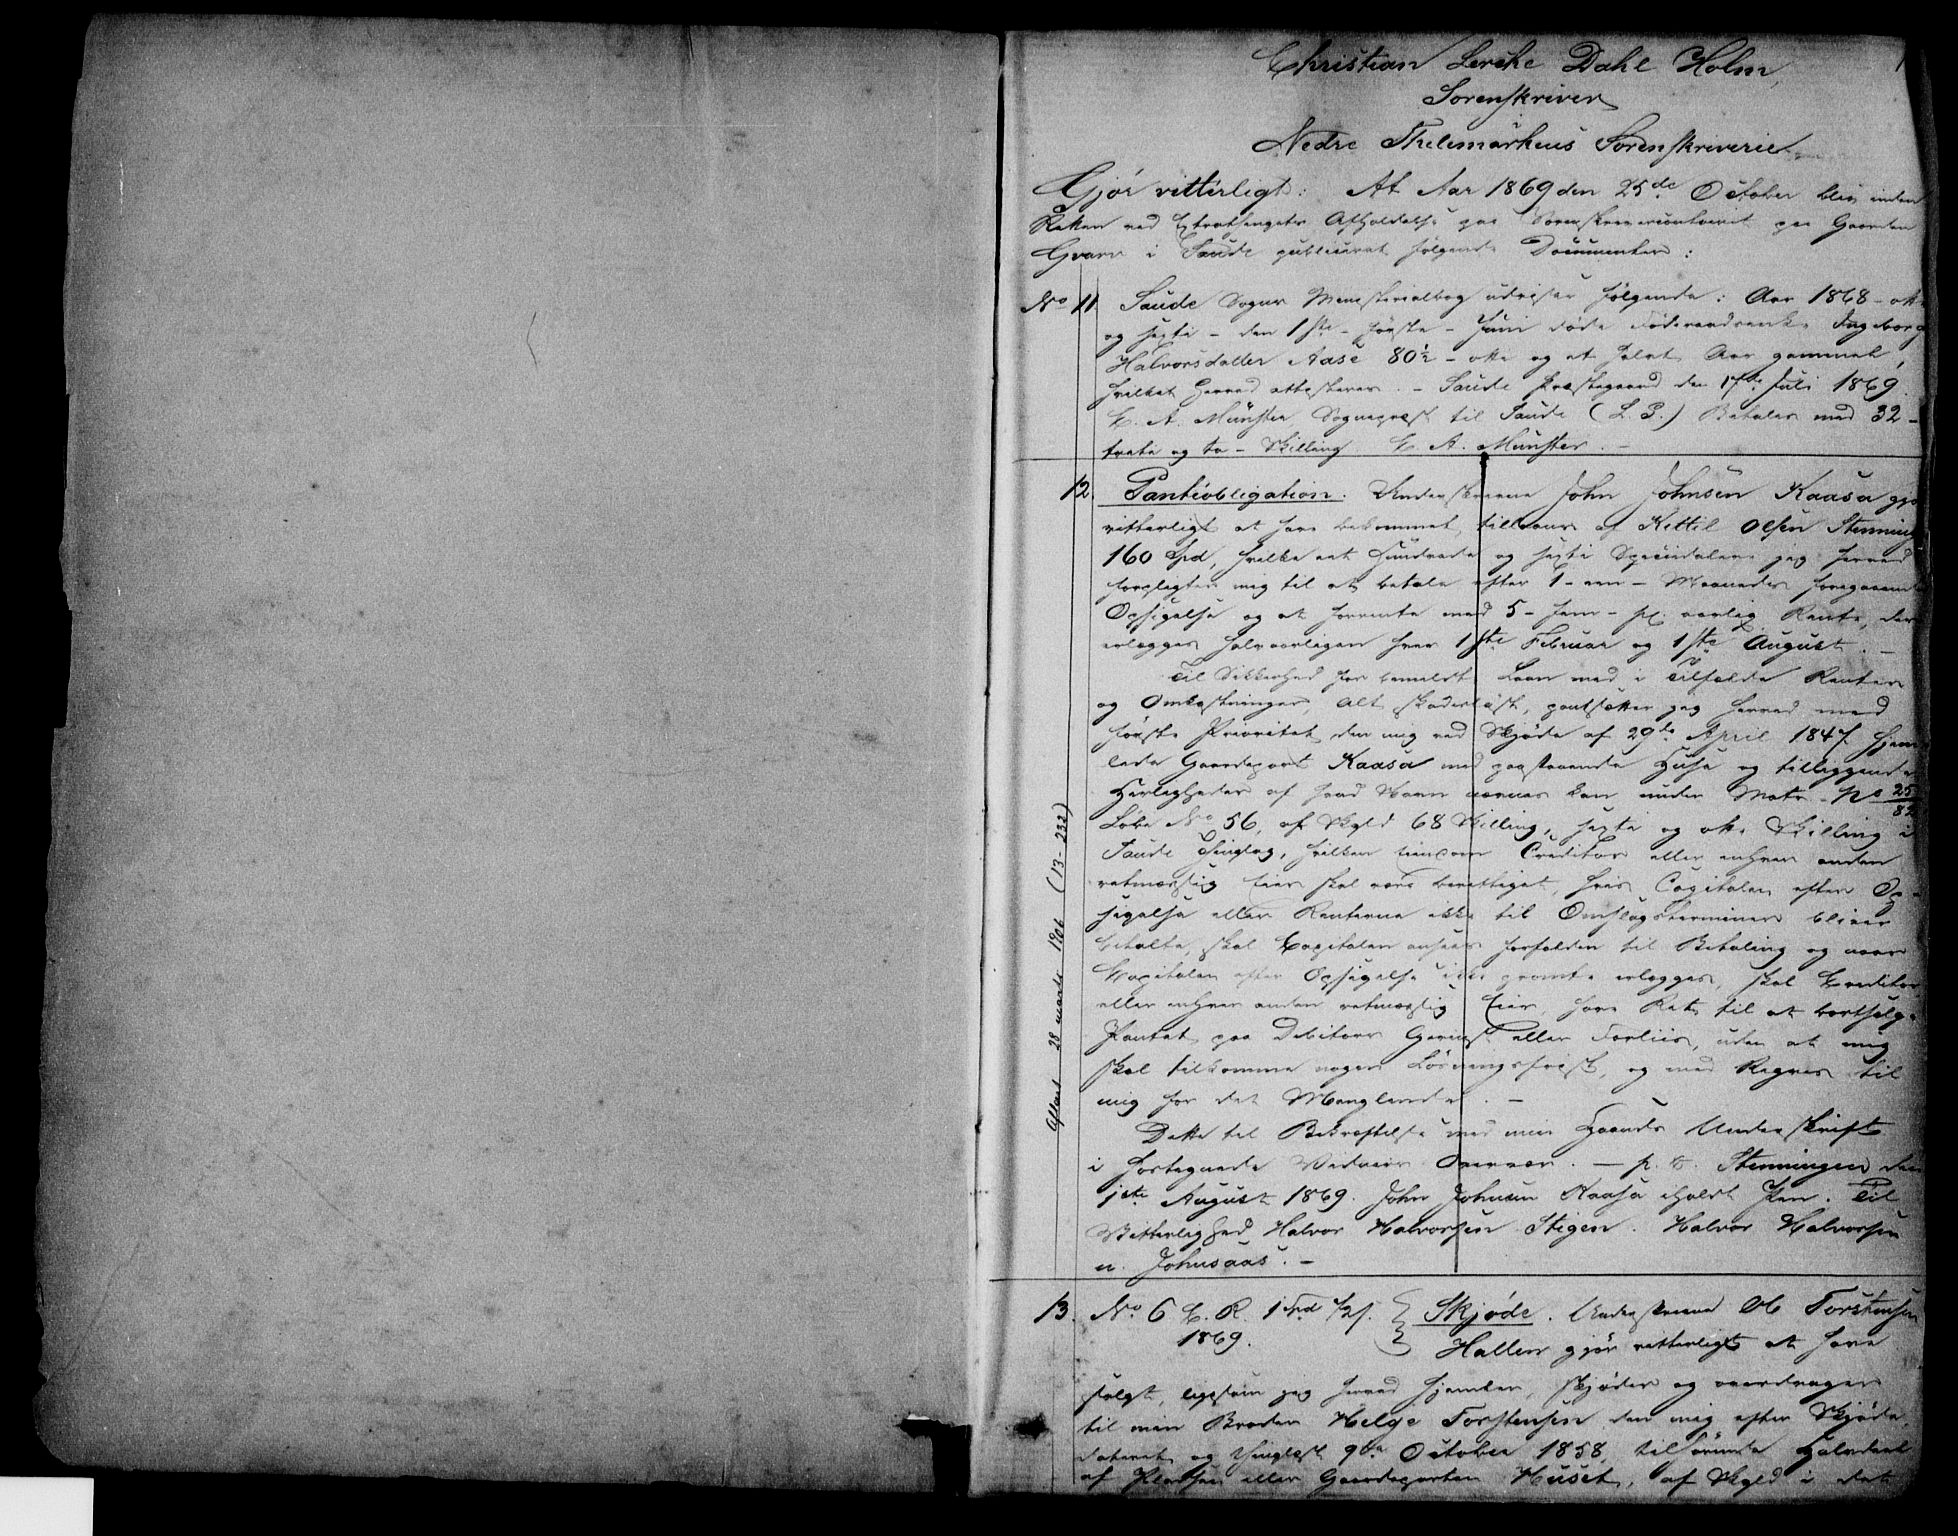 1
Christian Lerche Dahl Holm,
Sorenskriver
Nedre Thelemarkens Sorenskriverie
Gjør vitterligt: At Aar 1869 den 25de October blev inden
Retten ved Extrathingets Afholdelse paa Sorenskrivercontoret paa Gaarden
Gvarv i Saude publiceret følgende Documenter:
No 11. Saude Sogns Ministerialbog udviser følgende: Aar 1868 - otte
og sexti - den 1ste - første - Juni døde Føderaadsenke Ingeborg
Halvorsdatter Aase 80½ - otte og et halvt Aar gammel,
hvilket herved attesteres. - Saude Præstegaard den 17de Juli 1869.
E. A. Münster Sognepræst til Saude (L. S.) Betales med 32 -
treti og to - Skilling E. A. Münster. -
12. Pantéobligation. Underskrevne John Johnsen Kaasa gjør
vitterligt at have bekommet tillaans af Kittil Olsen Stenningen
160 Spd, hvilke eet Hundrede og sexti Speciedaler jeg herved
forpligter mig til at betale efter 1 - een - Maaneds foregaaende
Opsigelse og at forrente med 5 - fem - pC. aarlig Rente, der
erlægges halvaarligen hver 1ste Februar og 1ste August. -
Til Sikkerhed for bemeldt Laan med i Tilfælde Renter
og Omkostninger, Alt skadesløst, pantsætter jeg herved med
første Prioritet den mig ved Skjøde af 29de April 1847 hjem-
lede Gaardepart Kaasa med paastaaende Huse og tilliggende
Herligheder af hvad Navn nævnes kan under Matr. No 25/82
Løbe No 56, af Skyld 68 Skilling, sexti og otte Skilling i
Saude Thinglag, hvilken Eiendom Creditor eller enhver anden
retmæssig Eier skal være berettiget, hvis Capitalen efter Op-
sigelse eller Renterne ikke til Omslagsterminer bliver
betalte, skal Capitalen ansees forfalden til Betaling og naar
Capitalen efter Opsigelse ikke promte erlægges, skal Creditor
eller enhver anden retmæssig Eier, have Ret til at bortsælge
Pantet paa Debitors Gevinst eller Forliis, uden at mig
skal tilkomme nogen Løsningsfrist, og med Regres til
mig for det Manglende. -
Dette til Bekræftelse med min Haands Underskrift
i hostegnede Vidners Overvær. - p. t. Stenningen den
1ste August 1869. John Johnsen Kaasa iholdt Pen. Til
Vitterlighed Halvor Halvorsen Stigen. Halvor Halvorsen
n. Johnsaas. -
Aflæst 28 marts 1906 (13-233)
13. No 6 E. R. 1 Spd 1/2 s. Skjøde. Underskrevne Ole Torstensen
1869. Hallen gjør vitterligt at have
solgt, ligesom jeg herved hjemler, skjøder og overdrager
til min Broder Helge Torstensen den mig efter Skjøde,
dateret og thinglæst 9de October 1858, tilhørende Halvdeel
af Pladsen eller Gaardeparten Huset, af Skyld i det